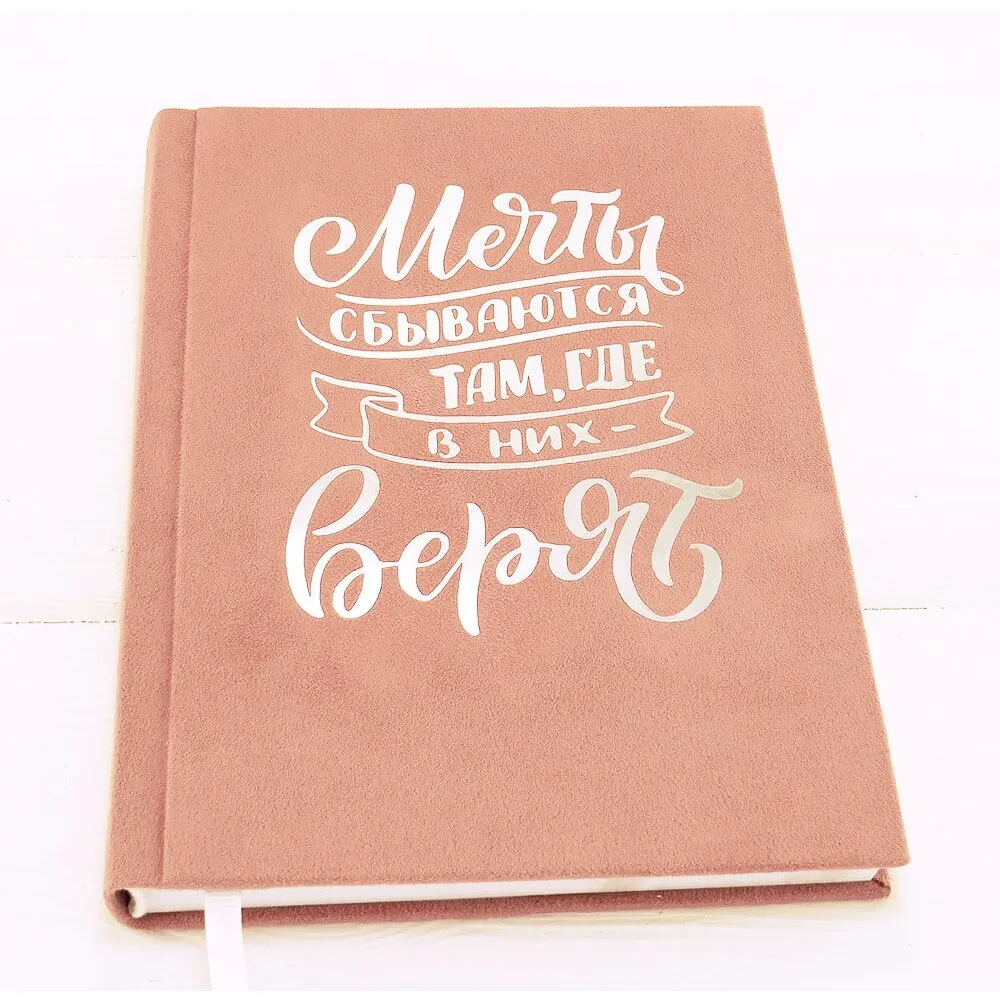 Мечты
СБЫВАЮТСЯ
ТАМ, ГДЕ
В НИХ -
Верят